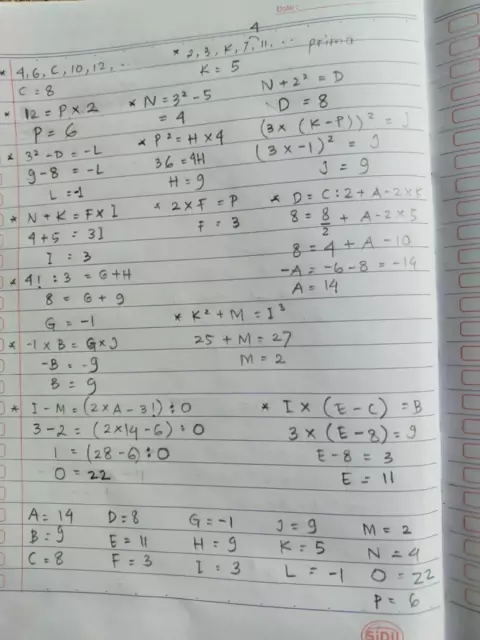 Date:
4
* 4, 6, C, 10, 12, ..
* 2, 3, K, 7, 11, ... prima
C = 8
K = 5
* 12 = P x 2
P = 6
* N = 3² - 5
= 4
N + 2² = D
D = 8
* 3² - D = -L
9 - 8 = -L
L = -1
* P² = H x 4
36 = 4H
H = 9
(3 x (K - P))² = J
(3 x -1)² = J
J = 9
* N + K = F x I
4 + 5 = 3I
I = 3
* 2 x F = P
F = 3
* D = C : 2 + A - 2 x K
8 = 8/2 + A - 2 x 5
8 = 4 + A - 10
-A = -6 - 8 = -14
A = 14
* 4! : 3 = G + H
8 = G + 9
G = -1
* K² + M = I³
25 + M = 27
M = 2
* -1 x B = G x J
-B = -9
B = 9
* I - M = (2 x A - 3!) : O
3 - 2 = (2 x 14 - 6) : O
1 = (28 - 6) : O
O = 22
* I x (E - C) = B
3 x (E - 8) = 9
E - 8 = 3
E = 11
A = 14 D = 8 G = -1 J = 9 M = 2
B = 9 E = 11 H = 9 K = 5 N = 4
C = 8 F = 3 I = 3 L = -1 O = 22
P = 6
SIDU